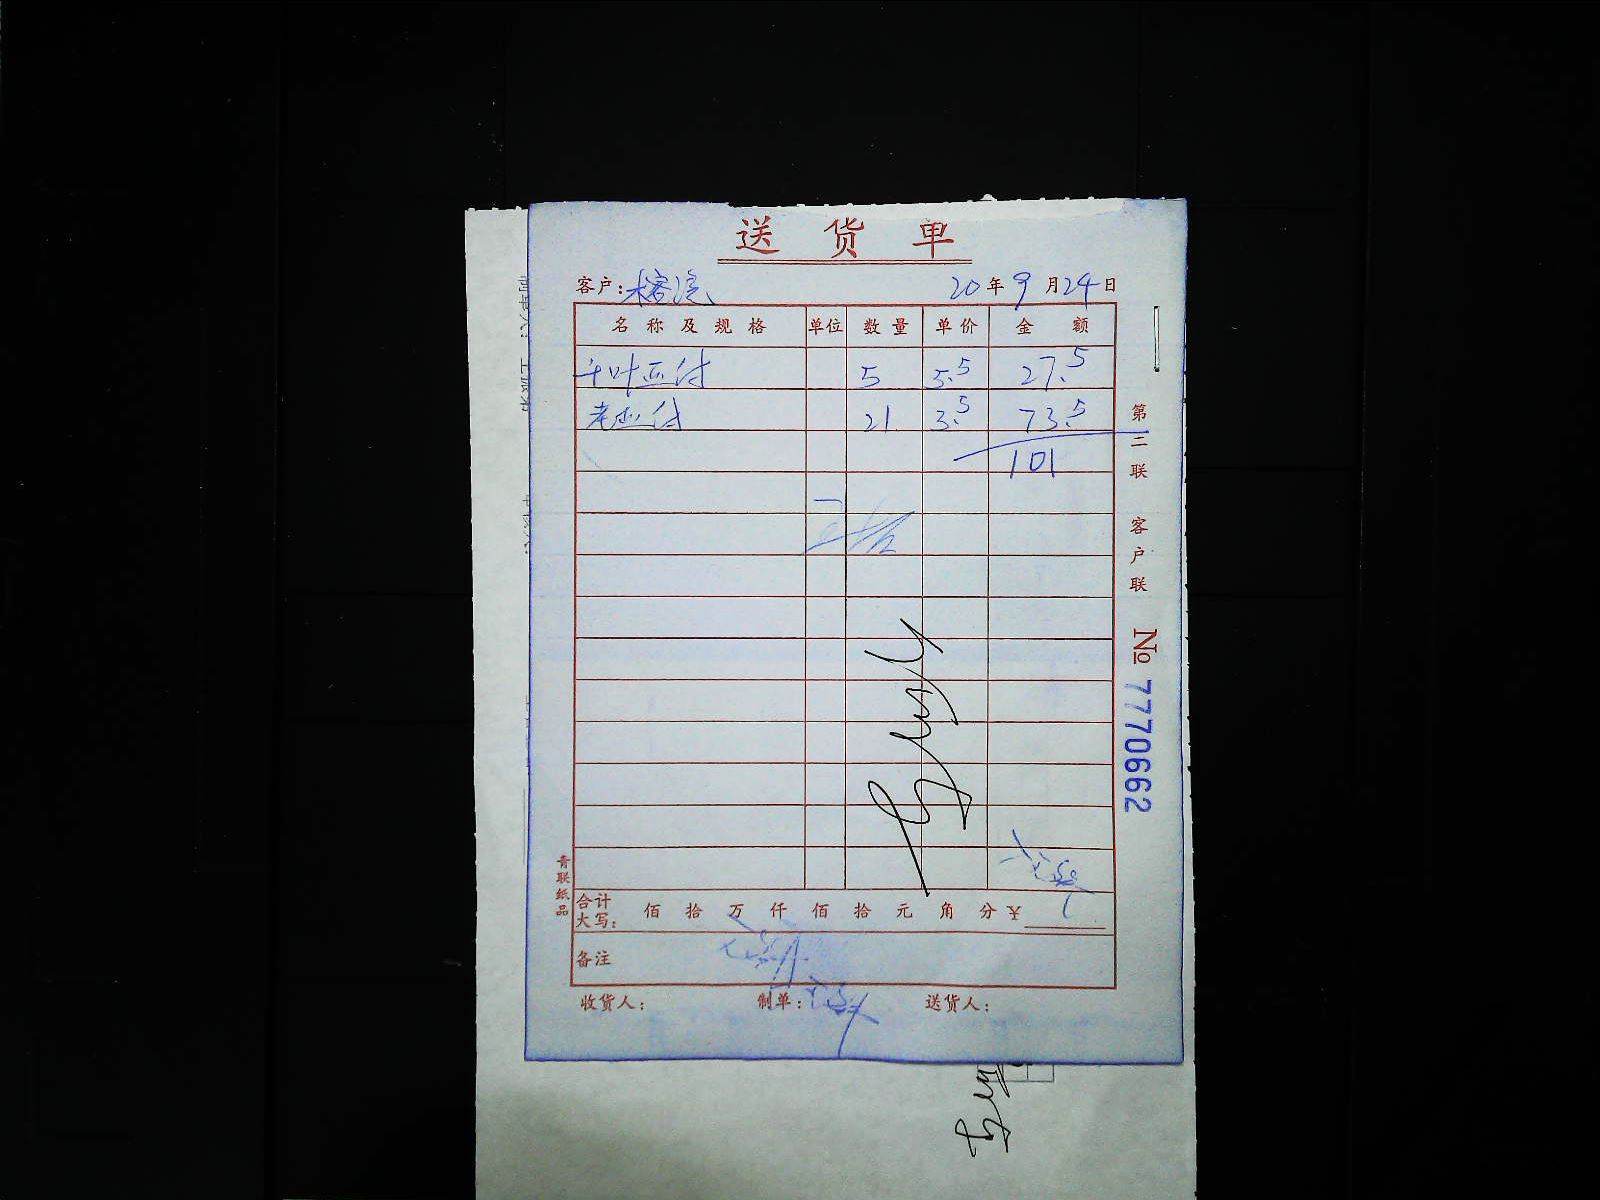 送货单
客户: 20年9月24日
名称及规格 单位 数量 单价 金额
千叶豆付 5 5.5 27.5
老豆付 21 3.5 73.5
101
第二联 客户联
№ 7770662
青联纸品
合计大写: 佰 拾 万 仟 佰 拾 元 角 分 ¥
备注
收货人: 制单: 送货人: